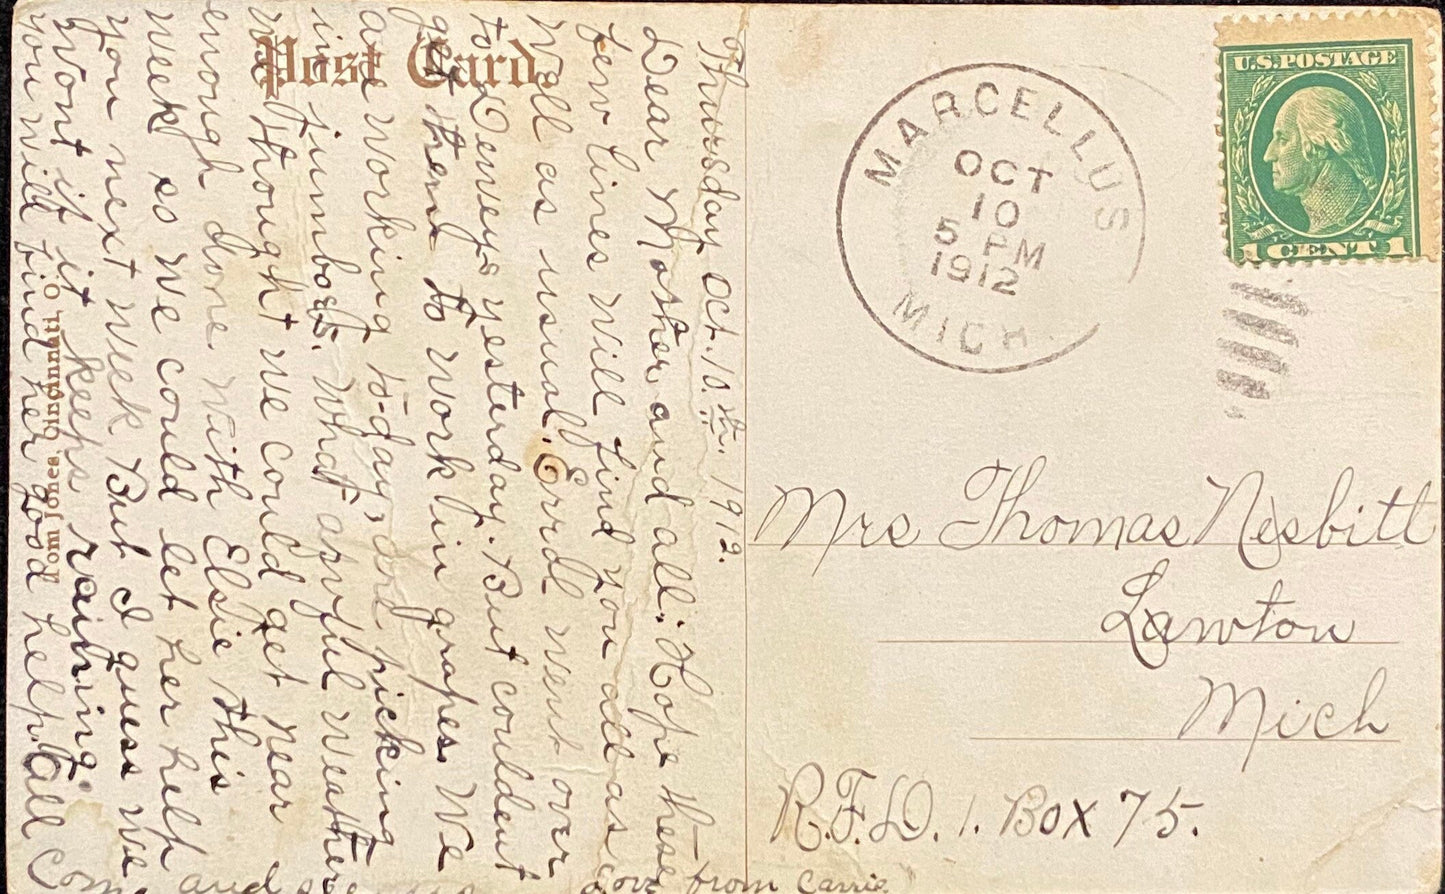 Post Card
Thursday Oct. 10.th. 1912.
Dear Mother and all: Hope these
few lines will find you all as
well as usual. Errol went over
to Deweys yesterday. But couldent
get them to work in grapes. We
are working to-day, and picking
in jumbos. What awful weather
we thought we could get near
enough done with Elsie this
week so we could let her help
you next week But I guess we
wont if it keeps raining.
you will find her good help. All
Come and
from Carrie
Tom Jones, Cincinnati, O.
MARCELLUS
OCT
10
5 PM
1912
MICH.
U.S. POSTAGE
1 CENT 1
Mrs Thomas Nesbitt
Lawton
Mich
R.F.D. 1. Box 75.